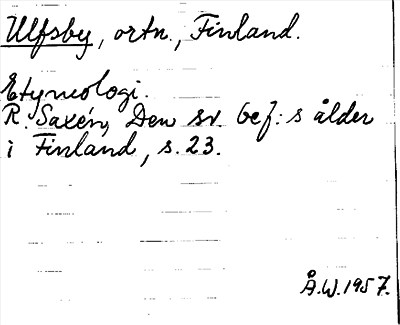 Ulfsby, ortn., Finland.
Etymologi.
R. Saxén, Den sv. bef:s ålder
i Finland, s. 23.
Å.W. 1957.